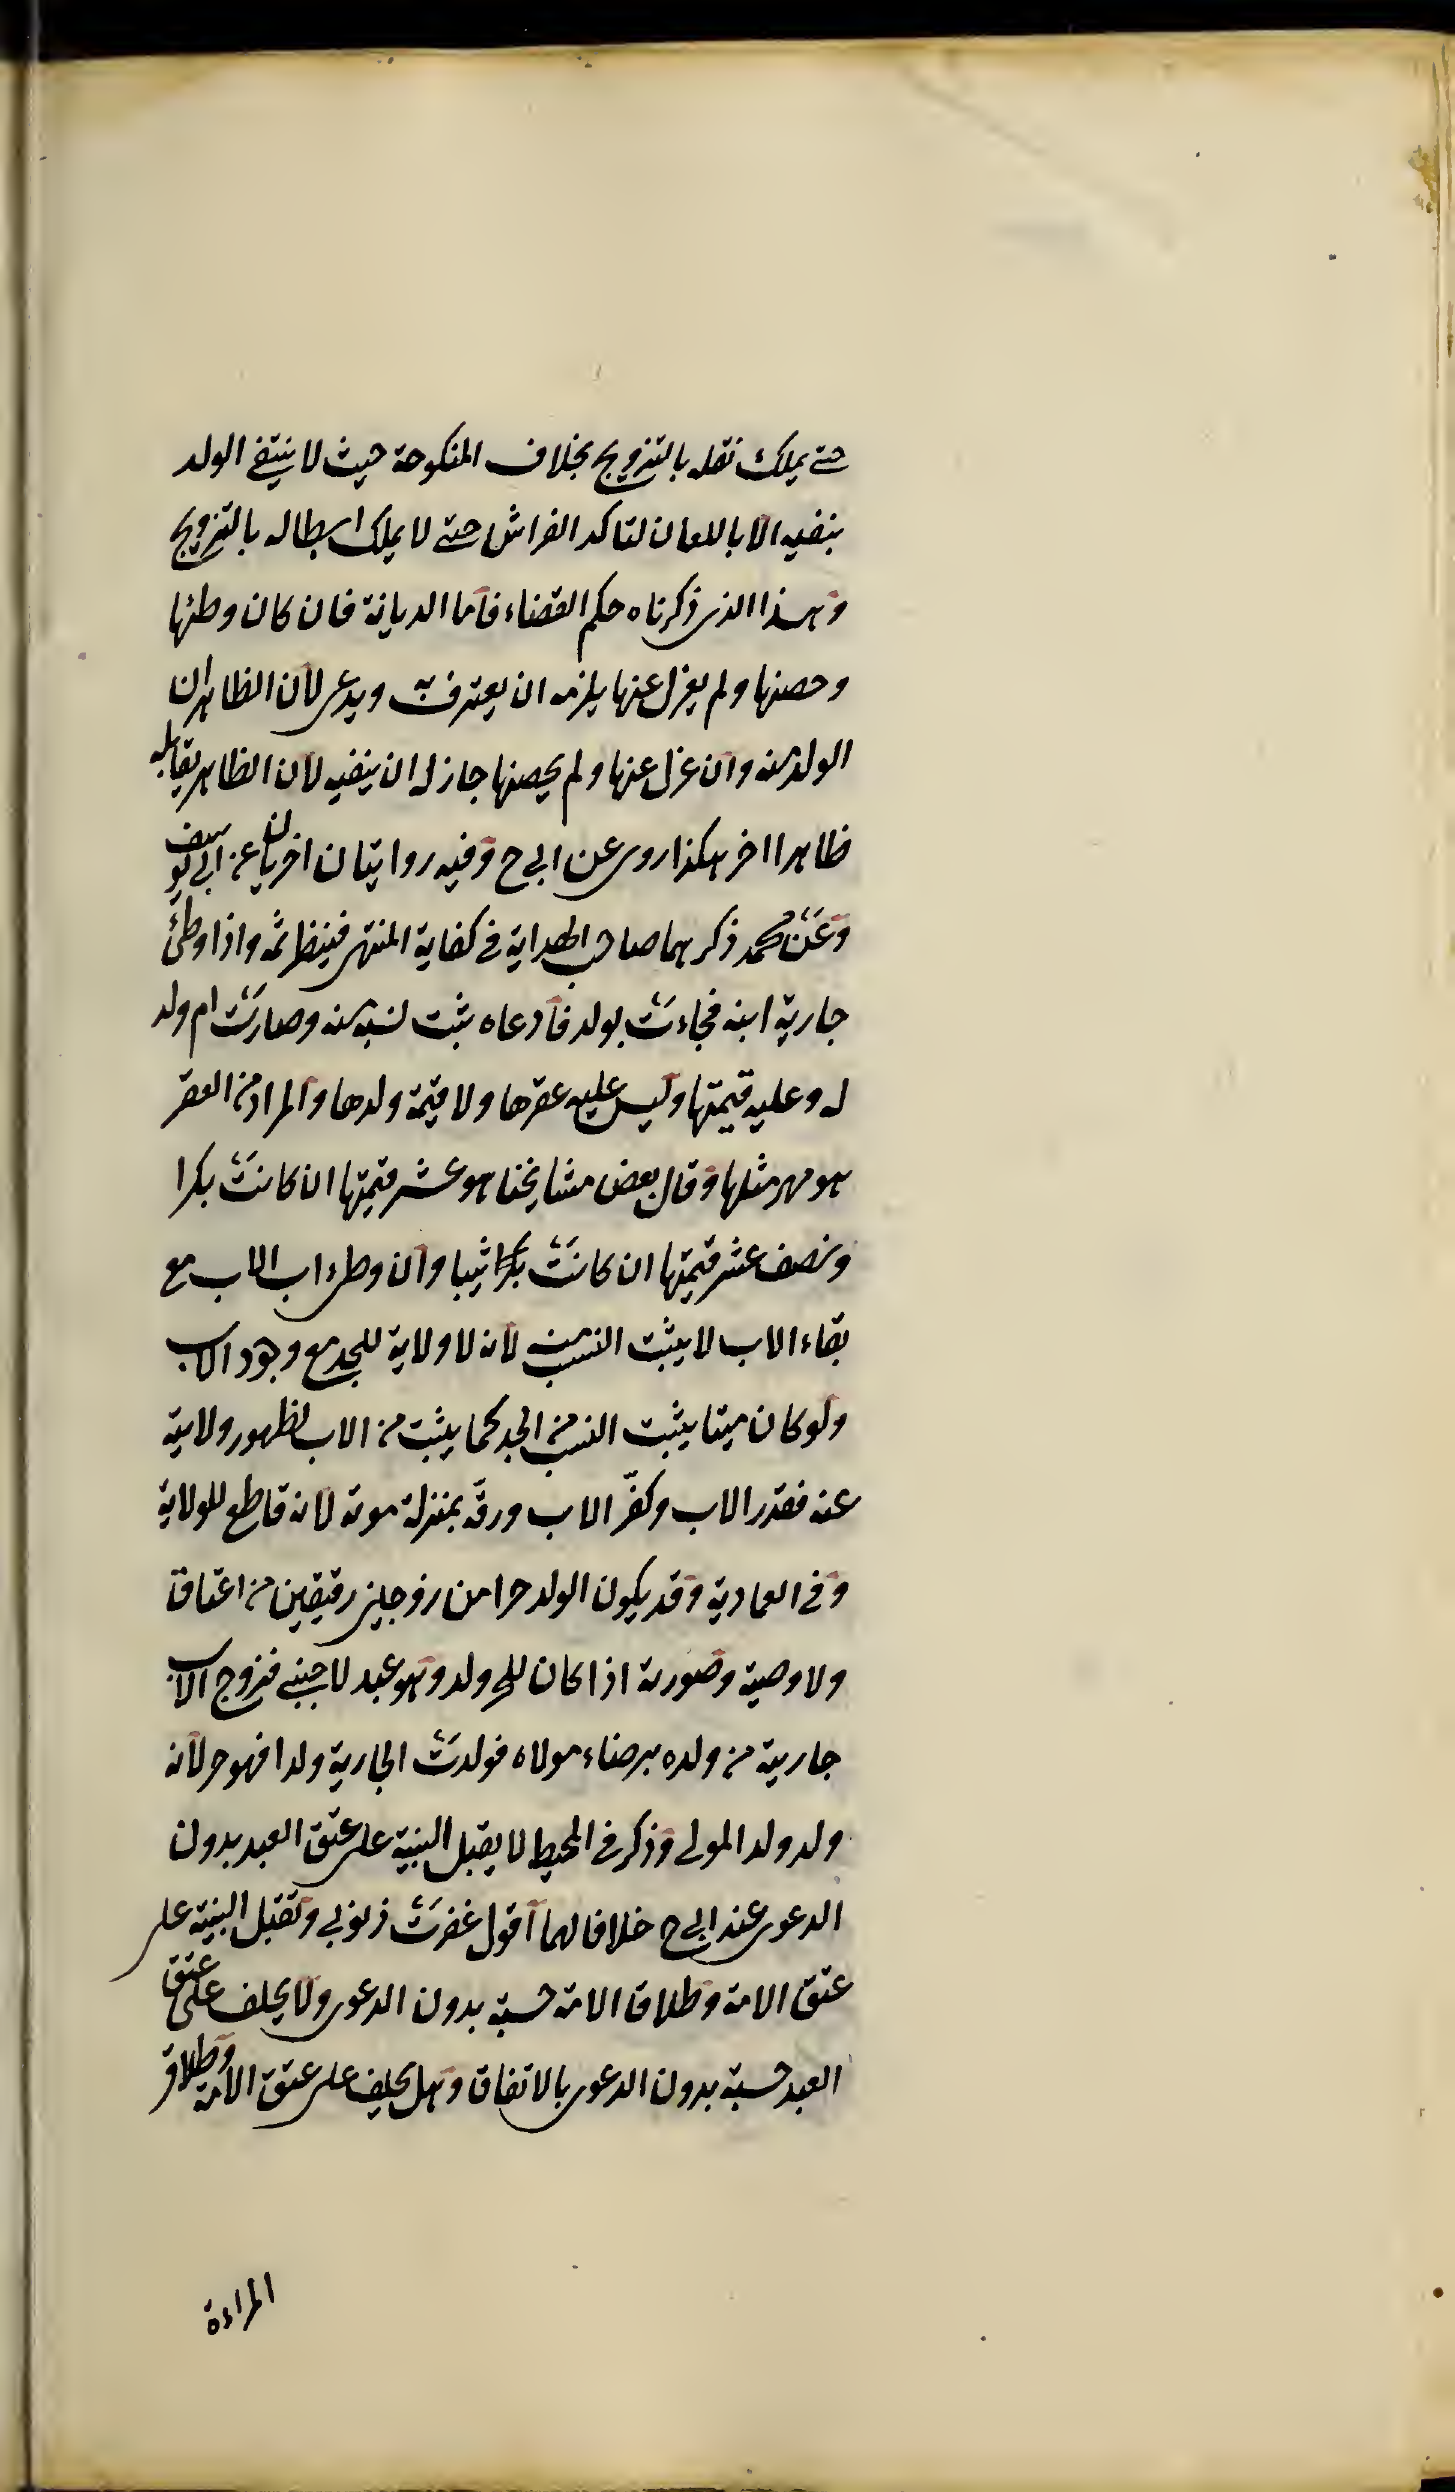 حتى يملك نقله بالتزويج بخلاف المنكوحة حيث لا ينتفى الولد
بنفيه الا باللعان لتاكد الفراش حتى لا يملك ابطاله بالتزويج
وهذا الذى ذكرناه حكم القضاء فاما الديانة فان كان وطئها
وحصنها ولم يعزل عنها يلزمه ان يعترف به ويدعى لان الظاهر ان
الولد منه وان عزل عنها ولم يحصنها جاز له ان ينفيه لان الظاهر يقابله
ظاهرا اخر هكذا روى عن ابى ح وفيه روايتان اخريان عن ابى يوسف
وعن محمد ذكرهما صاحب الهداية فى كفاية المنتهى فينظر ثمه واذا وطئ
جارية ابنه فجاءت بولد فادعاه يثبت نسبه منه وصارت ام ولد
له وعليه قيمتها وليس عليه عقرها ولا قيمة ولدها والمراد من العقر
هو مهر مثلها وقال بعض مشايخنا هو عشر قيمتها ان كانت بكرا
ونصف عشر قيمتها ان كانت ثيبا وان وطئ اب الاب مع
بقاء الاب لا يثبت النسب منه لانه لا ولاية للجد مع وجود الاب
ولو كان ميتا يثبت النسب من الجد كما يثبت من الاب لظهور ولايته
عند فقد الاب وكفر الاب ورقه بمنزلة موته لانه قاطع للولاية
وفى العمادية وقد يكون الولد حرا من زوجين رقيقين من اعتاق
ولا وصية وصورته اذا كان للحر ولد وهو عبد لاجنبى فزوج الاب
جاريته من ولده برضاء مولاه فولدت الجارية ولدا فهو حر لانه
ولد ولد المولى وذكر فى المحيط لا يقبل البينة على عتق العبد بدون
الدعوى عند ابى ح خلافا لهما اقول غفرت ذنوبى وتقبل البينة على
عتق الامة وطلاق الامة حسبة بدون الدعوى ولا يحلف على عتق
العبد حسبة بدون الدعوى بالاتفاق وهل يحلف على عتق الامة وطلاق
المراءة